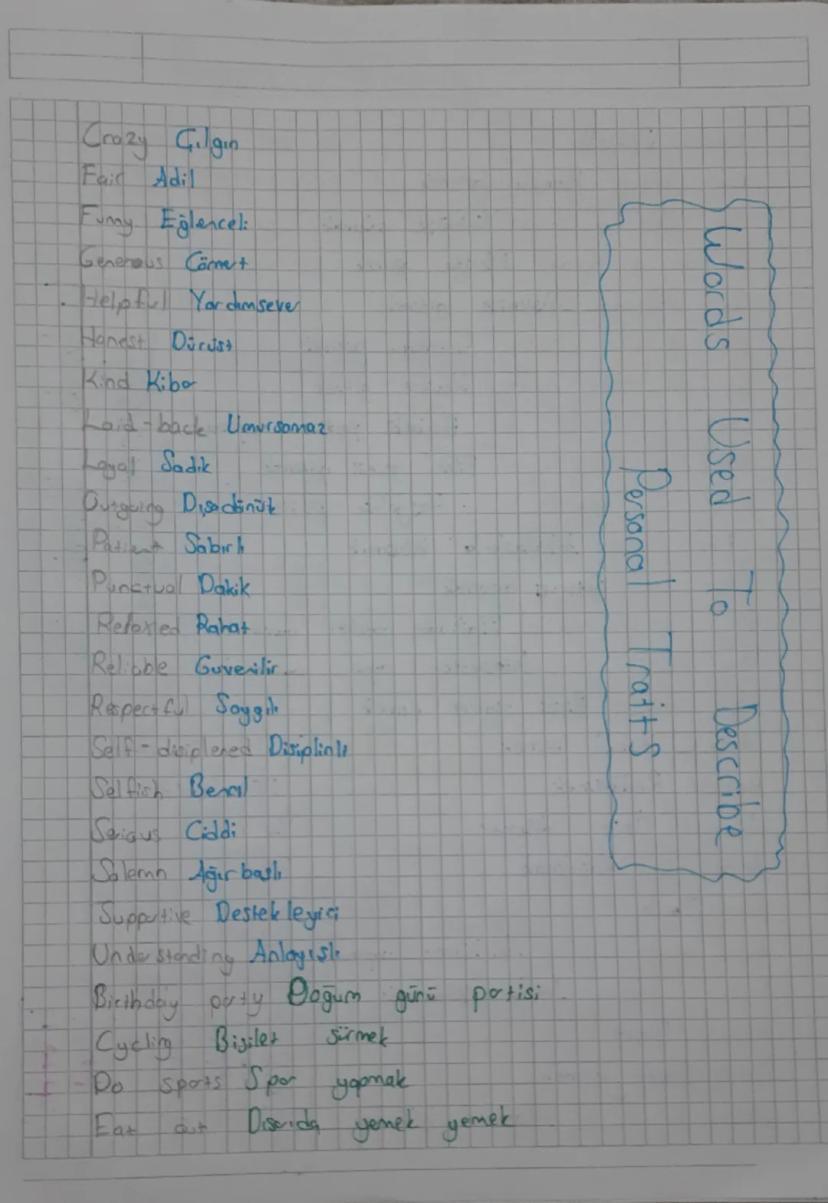 Crazy Çılgın
Fair Adil
Funny Eğlenceli
Generous Cömert
Helpful Yardımsever
Honest Dürüst
Kind Kibar
Laid-back Umursamaz
Loyal Sadık
Outgoing Dışadönük
Patient Sabırlı
Punctual Dakik
Relaxed Rahat
Reliable Güvenilir
Respectful Saygılı
Self-disiplened Disiplinli
Selfish Bencil
Serious Ciddi
Solemn Ağır başlı
Suppotive Destekleyici
Understanding Anlayışlı
Birthday party Doğum günü partisi
Cycling Bisiklet sürmek
Do sports Spor yapmak
Eat out Dışarıda yemek yemek
Words Used To Describe
Personal Traits